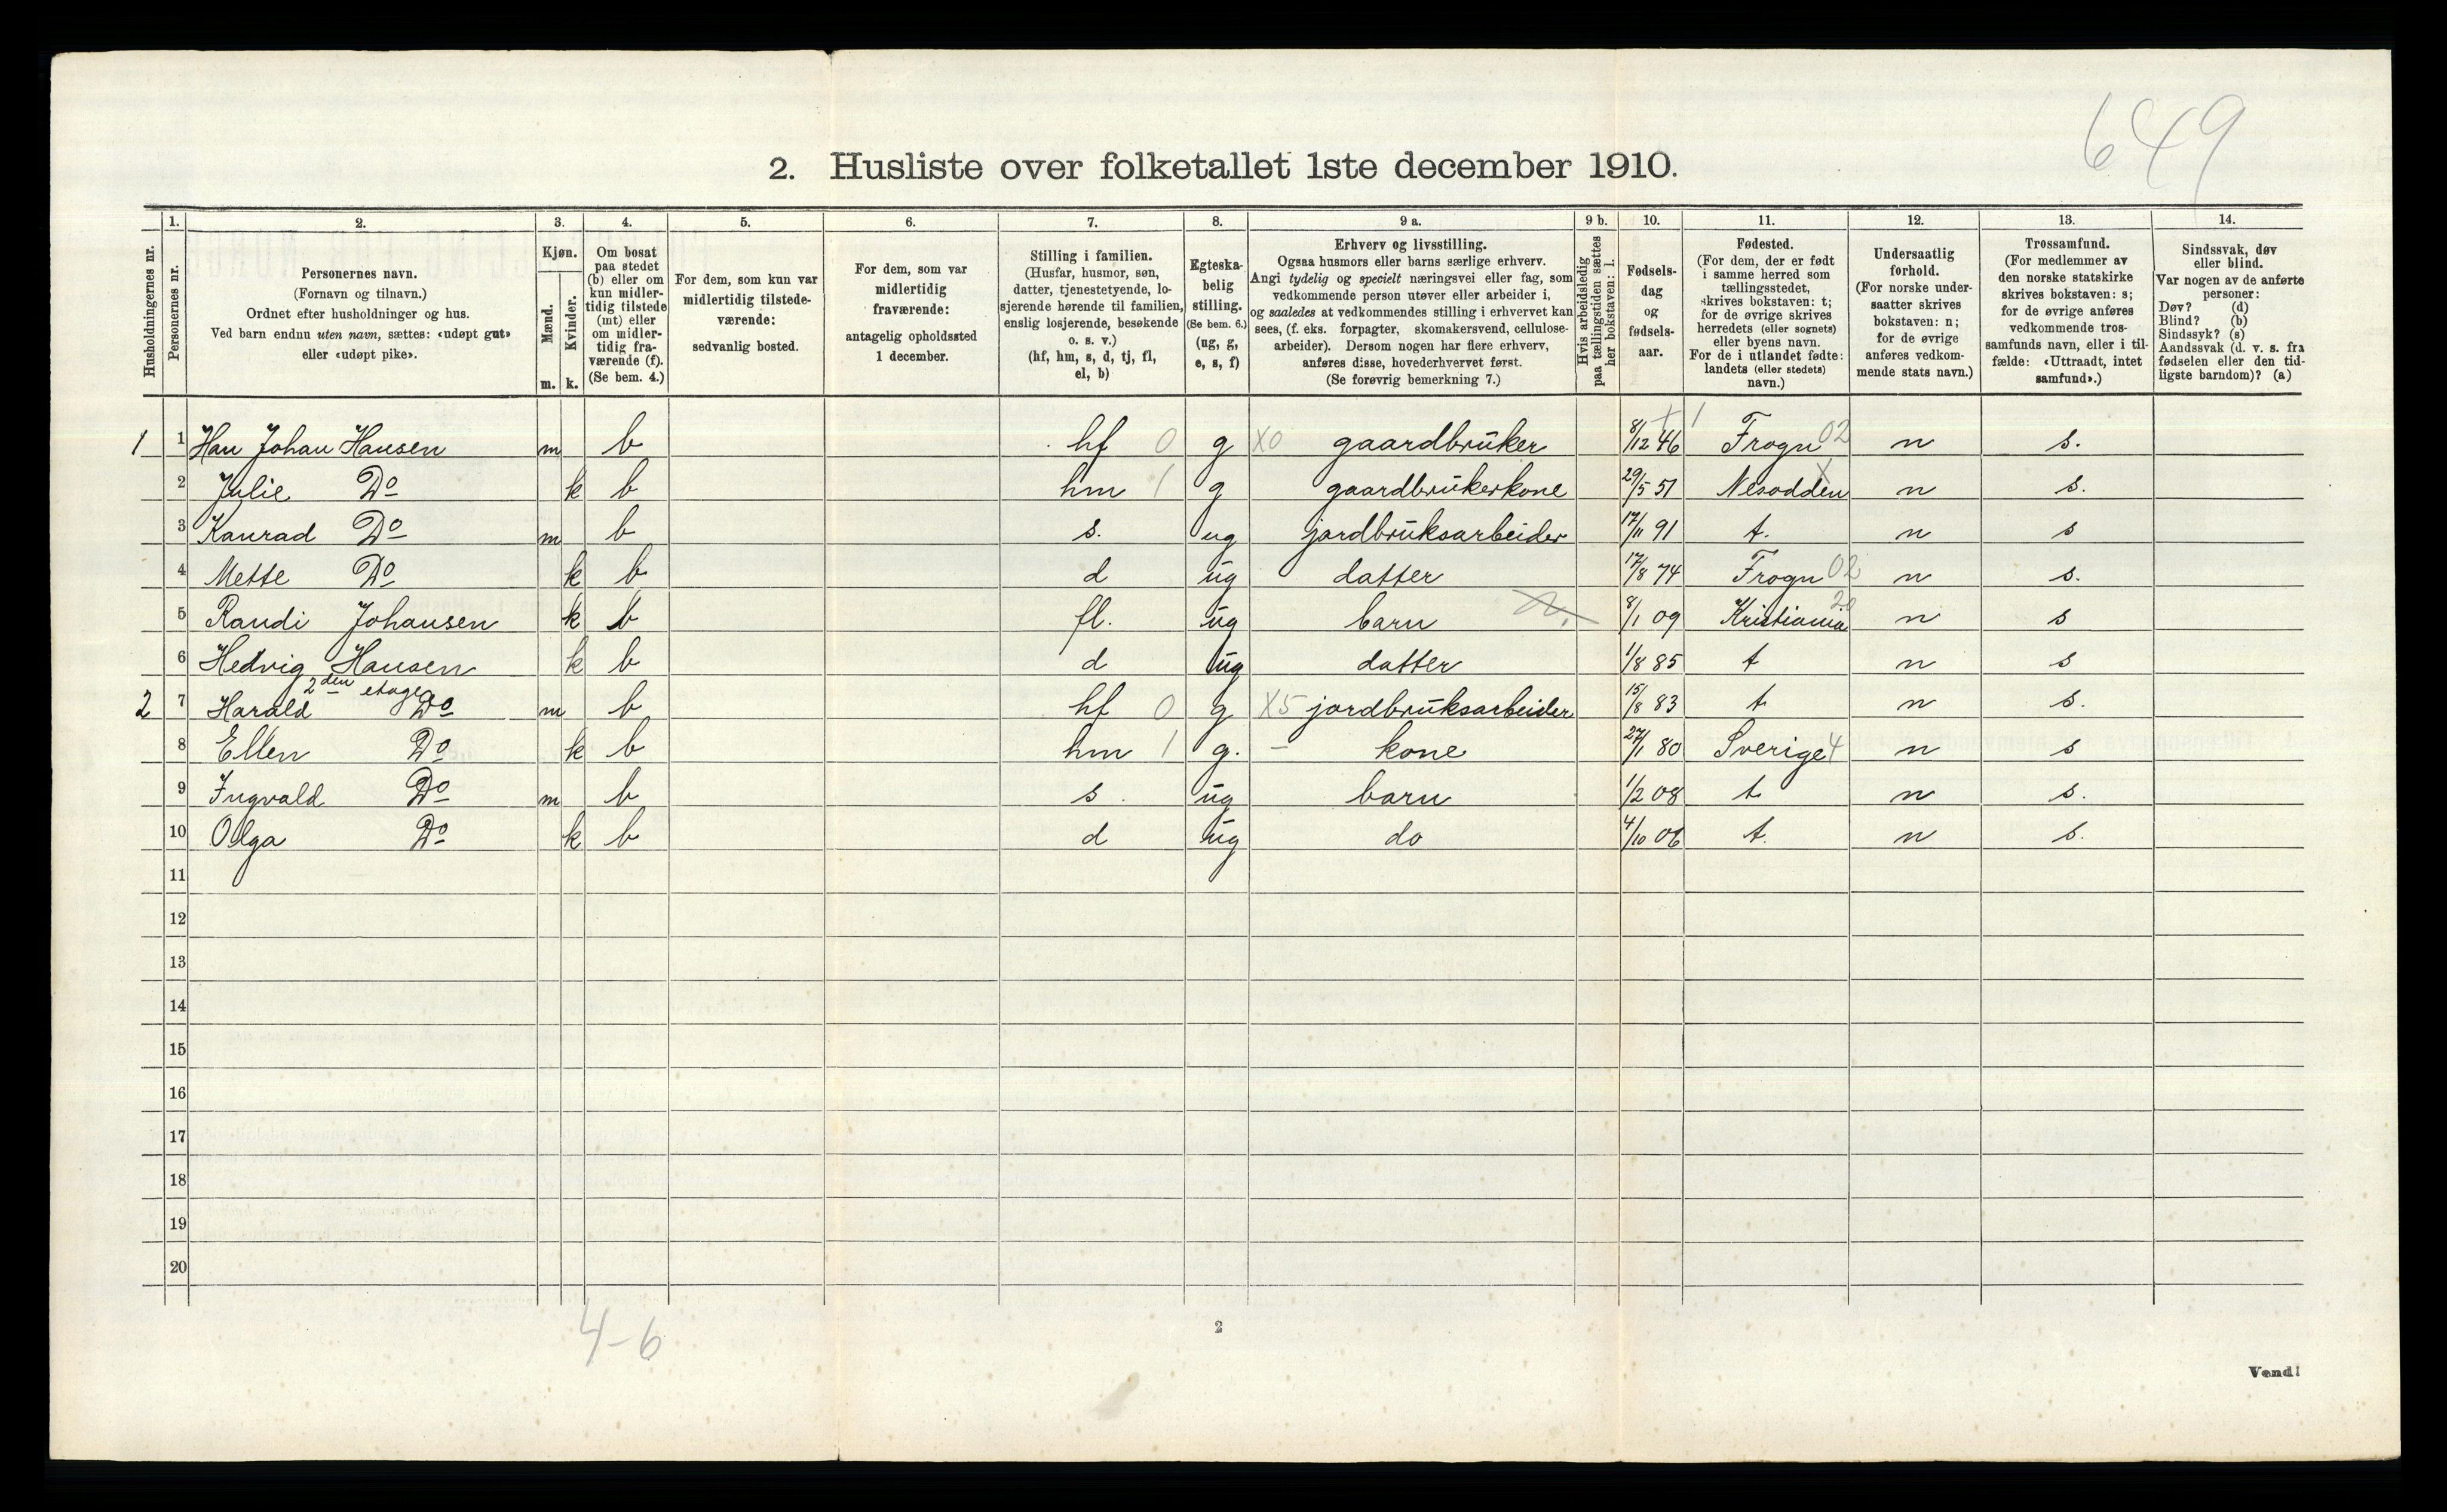 649
2. Husliste over folketallet 1ste december 1910.
Husholdningernes nr.
1.
Personernes nr.
2.
Personernes navn.
(Fornavn og tilnavn.)
Ordnet efter husholdninger og hus.
Ved barn endnu uten navn, sættes: «udøpt gut»
eller «udøpt pike».
3.
Kjøn.
Mænd.
m.
Kvinder.
k.
4.
Om bosat
paa stedet
(b) eller om
kun midler-
tidig tilstede
(mt) eller
om midler-
tidig fra-
værende (f).
(Se bem. 4.)
5.
For dem, som kun var
midlertidig tilstede-
værende:
sedvanlig bosted.
6.
For dem, som var
midlertidig
fraværende:
antagelig opholdssted
1 december.
7.
Stilling i familien.
(Husfar, husmor, søn,
datter, tjenestetyende, lo-
sjerende hørende til familien,
enslig losjerende, besøkende
o. s. v.)
(hf, hm, s, d, tj, fl,
el, b)
8.
Egteska-
belig
stilling.
(Se bem. 6.)
(ug, g,
e, s, f)
9 a.
Erhverv og livsstilling.
Ogsaa husmors eller barns særlige erhverv.
Angi tydelig og specielt næringsvei eller fag, som
vedkommende person utøver eller arbeider i,
og saaledes at vedkommendes stilling i erhvervet kan
sees, (f. eks. forpagter, skomakersvend, cellulose-
arbeider). Dersom nogen har flere erhverv,
anføres disse, hovederhvervet først.
(Se forøvrig bemerkning 7.)
9 b.
Hvis arbeidsledig
paa tællingstiden sættes
her bokstaven: l.
10.
Fødsels-
dag
og
fødsels-
aar.
11.
Fødested.
(For dem, der er født
i samme herred som
tællingsstedet,
skrives bokstaven: t;
for de øvrige skrives
herredets (eller sognets)
eller byens navn.
For de i utlandet fødte:
landets (eller stedets)
navn.)
12.
Undersaatlig
forhold.
(For norske under-
saatter skrives
bokstaven: n;
for de øvrige
anføres vedkom-
mende stats navn.)
13.
Trossamfund.
(For medlemmer av
den norske statskirke
skrives bokstaven: s;
for de øvrige anføres
vedkommende tros-
samfunds navn, eller i til-
fælde: «Uttraadt, intet
samfund».)
14.
Sindssvak, døv
eller blind.
Var nogen av de anførte
personer:
Døv? (d)
Blind? (b)
Sindssyk? (s)
Aandssvak (d. v. s. fra
fødselen eller den tid-
ligste barndom)? (a)
1 1 Han Johan Hansen m b hf 0 g X0 gaardbruker 8/12 46 Frogn 02 n s.
2 Julie Do k b hm 1 g gaardbrukerkone 29/5 51 Nesodden X n s.
3 Kanrad Do m b s. ug jordbruksarbeider 17/11 91 t. n s
4 Mette Do k b d ug datter 17/8 74 Frogn 02 n s.
5 Randi Johansen k b fl. ug barn 8/1 09 Kristiania 20 n s
6 Hedvig Hansen k b d ug datter 1/8 85 t n s
2den etage
2 7 Harald Do m b hf 0 g X5 jordbruksarbeider 15/8 83 t n s.
8 Ellen Do k b hm 1 g. - kone 27/1 80 Sverige 4 n s
9 Ingvald Do m b s. ug barn 1/2 08 t n s.
10 Olga Do k b d ug do 4/10 06 t. n s.
11
12
13
14
15
16
17
18
19
20
4-6
2
Vend!